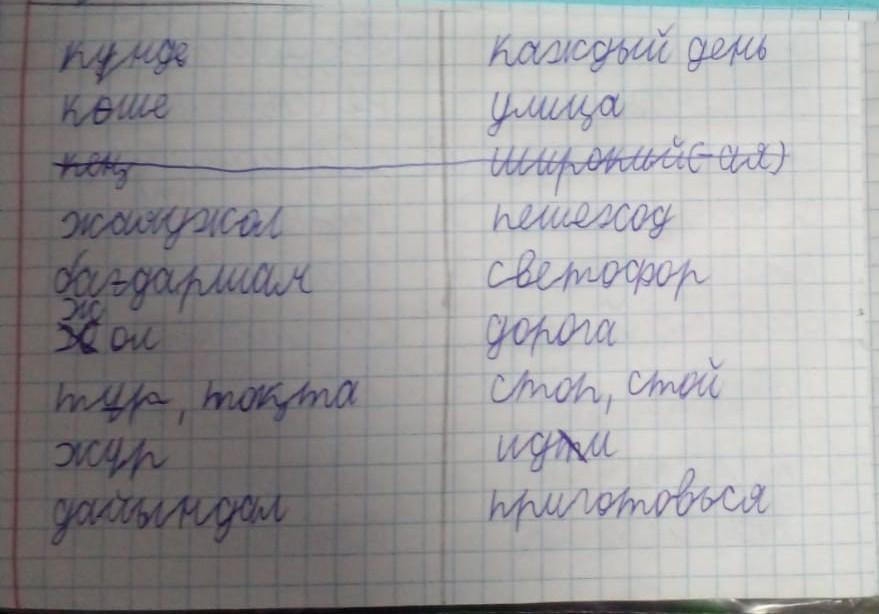 күнде каждый день
көше улица
кең широкий(-ая)
жаяужол пешеход
бағдаршам светофор
жол дорога
тұр, тоқта стоп, стой
жүр иди
дайындал приготовься